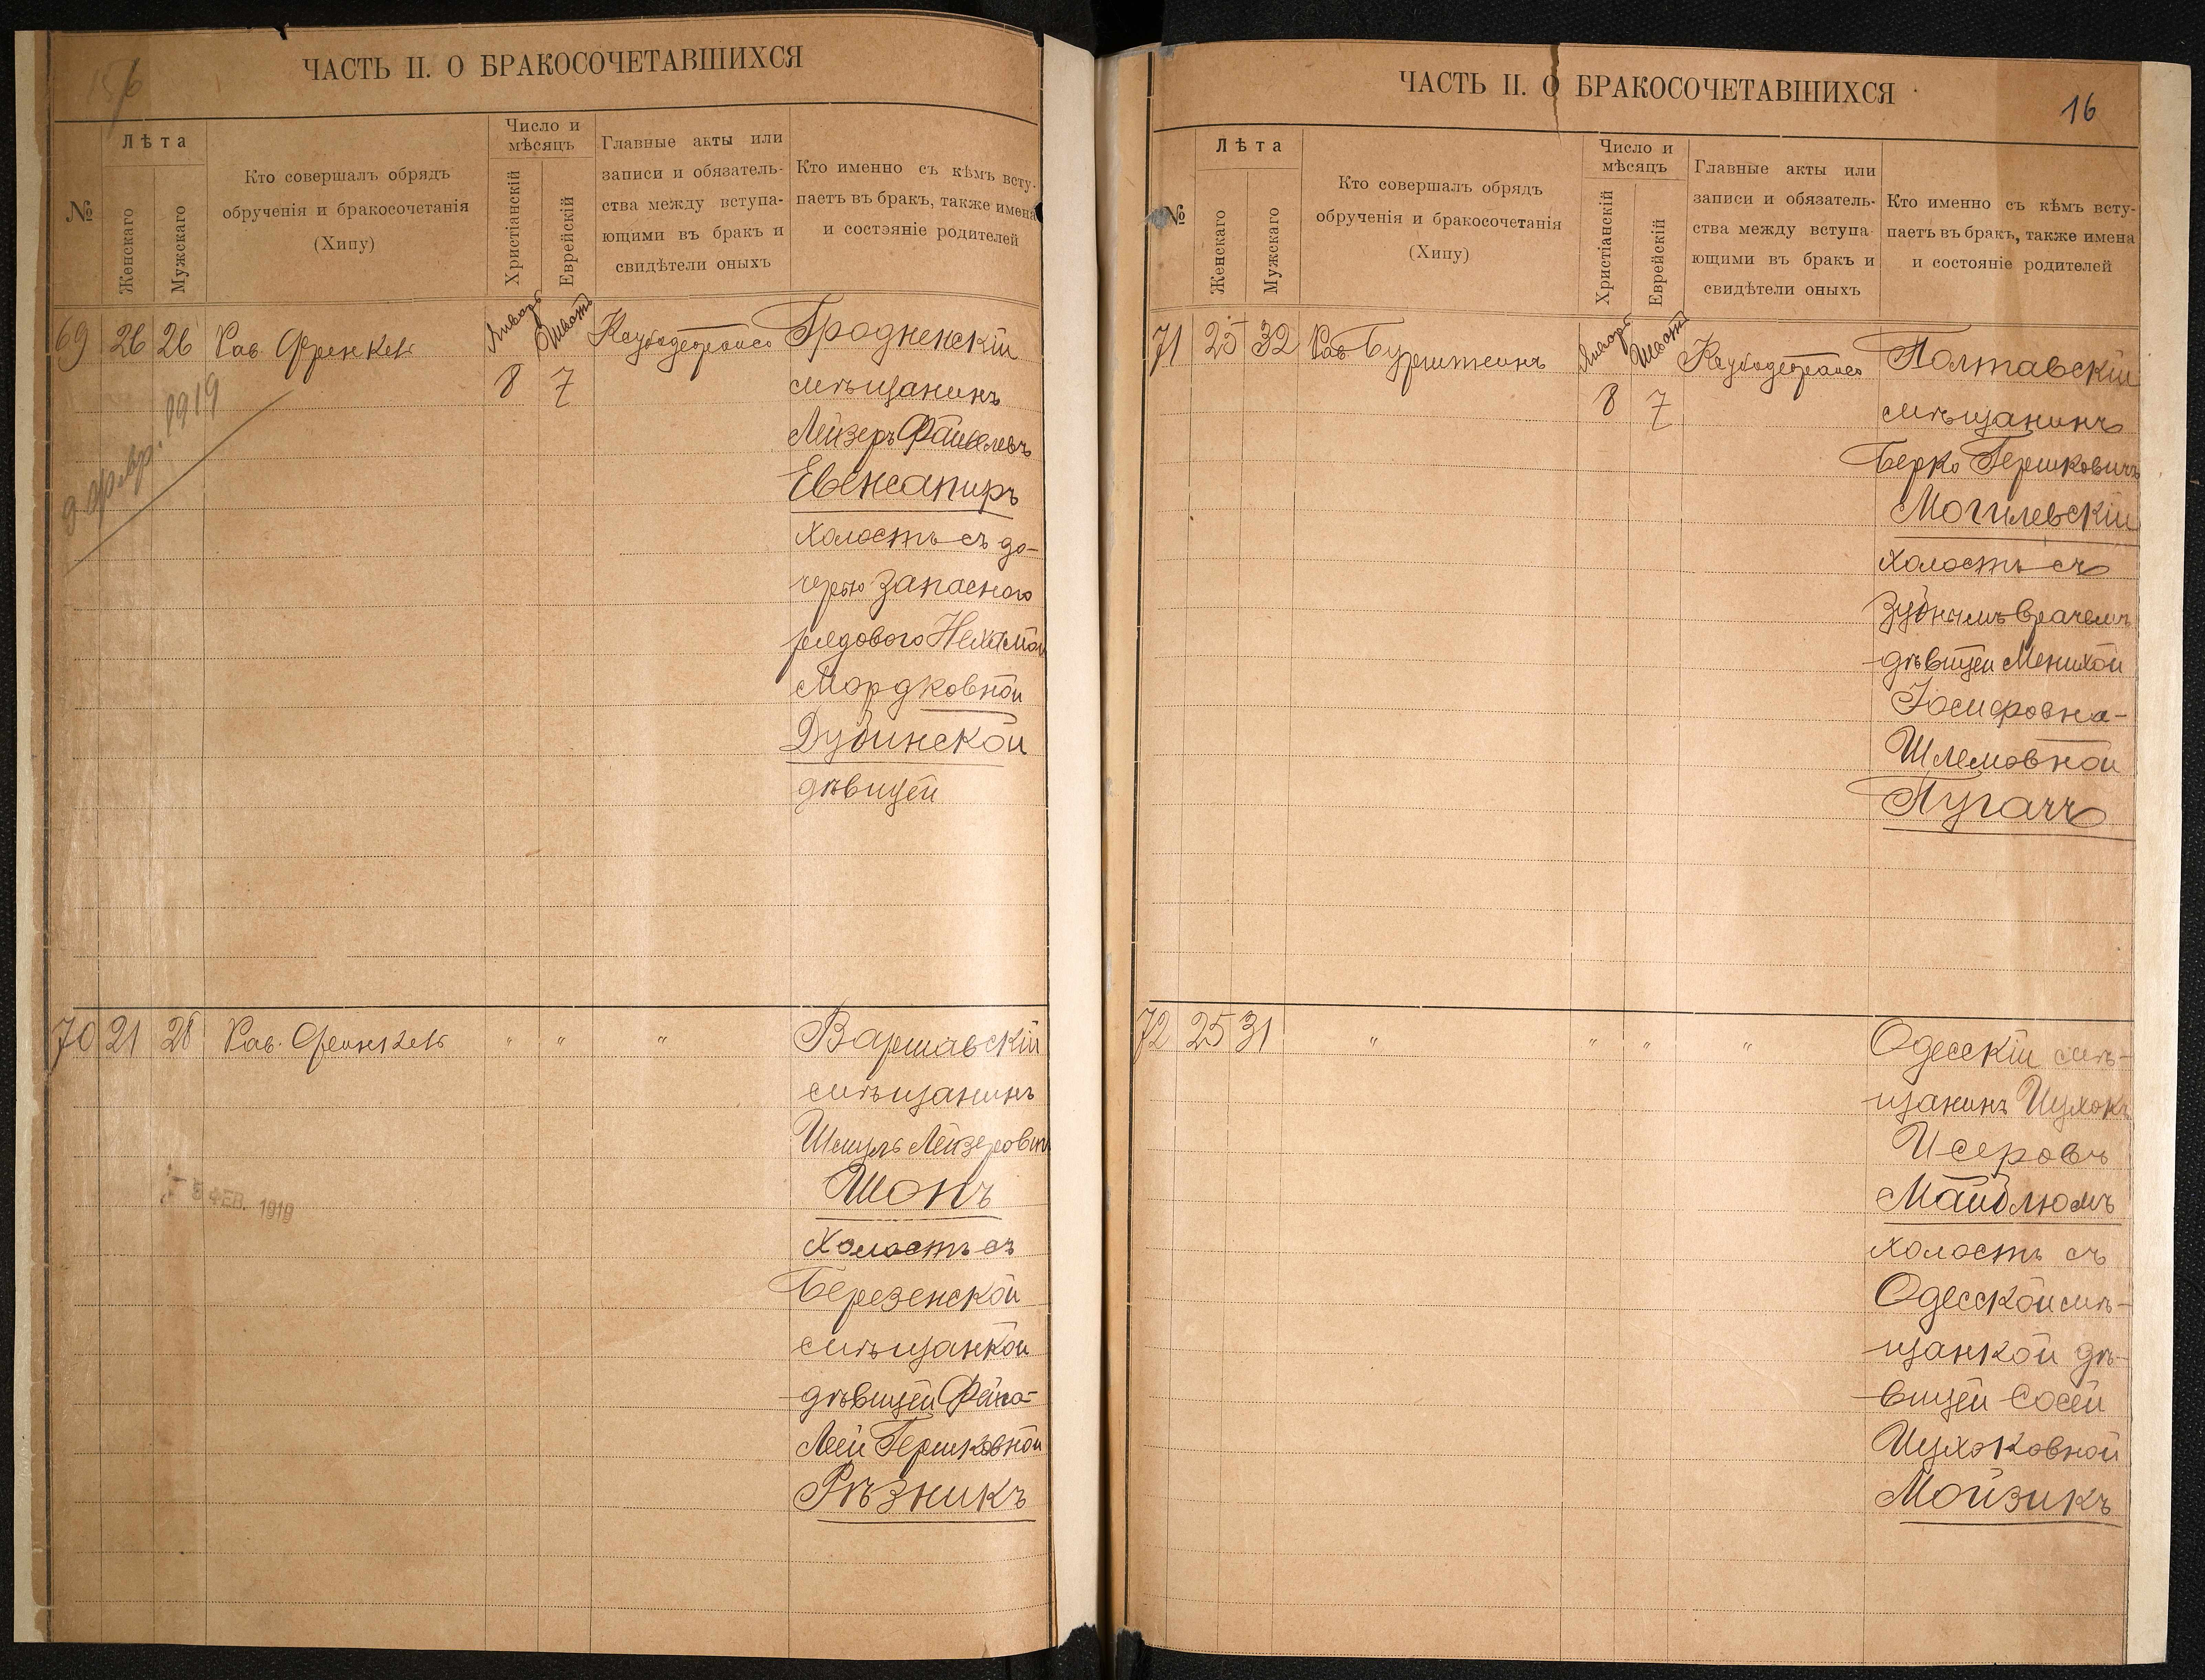 156
ЧАСТЬ II. О БРАКОСОЧЕТАВШИХСЯ
№
Лѣта
Женскаго
Мужскаго
Кто совершалъ обрядъ
обрученія и бракосочетанія
(Хипу)
Число и
мѣсяцъ
Христіанскій
Еврейскій
Главные акты или
записи и обязатель-
ства между вступа-
ющими въ бракъ и
свидѣтели оныхъ
Кто именно съ кѣмъ всту-
паетъ въ бракъ, также имена
и состояніе родителей
69 26 26 Рав. Френкель Январь 8 Шватъ 7 Гродненскій
мѣщанинъ
Лейзеръ Файвелевъ
Евенсапиръ
холостъ съ до-
черью запасного
рядового Нехамой
Мордковной
Дубинской
дѣвицей
9 февр. 1919
70 21 28 Рав. Френкель " " " Варшавскій
мѣщанинъ
Шмуль Лейзеровичъ
Шопъ
Холостъ съ
Березенской
мѣщанкой
дѣвицей Фейга-
Леей Гершковной
Рѣзникъ
5 ФЕВ. 1919
ЧАСТЬ II. О БРАКОСОЧЕТАВШИХСЯ
16
№
Лѣта
Женскаго
Мужскаго
Кто совершалъ обрядъ
обрученія и бракосочетанія
(Хипу)
Число и
мѣсяцъ
Христіанскій
Еврейскій
Главные акты или
записи и обязатель-
ства между вступа-
ющими въ бракъ и
свидѣтели оныхъ
Кто именно съ кѣмъ всту-
паетъ въ бракъ, также имена
и состояніе родителей
71 25 32 Рав. Январь 8 Шватъ 7 Полтавскій
мѣщанинъ
Берко Гершковичъ
Могилевскій
холостъ съ
зубнымъ врачемъ
дѣвицей Менихой
Іосифовна-
Шлемовной
Пугачъ
72 25 31 " " " " Одесскій мѣ-
щанинъ Ицхокъ
Исеровъ
Майблюмъ
холостъ съ
Одесской мѣ-
щанкой дѣ-
вицей Сосей
Ицхоковной
Мойзикъ